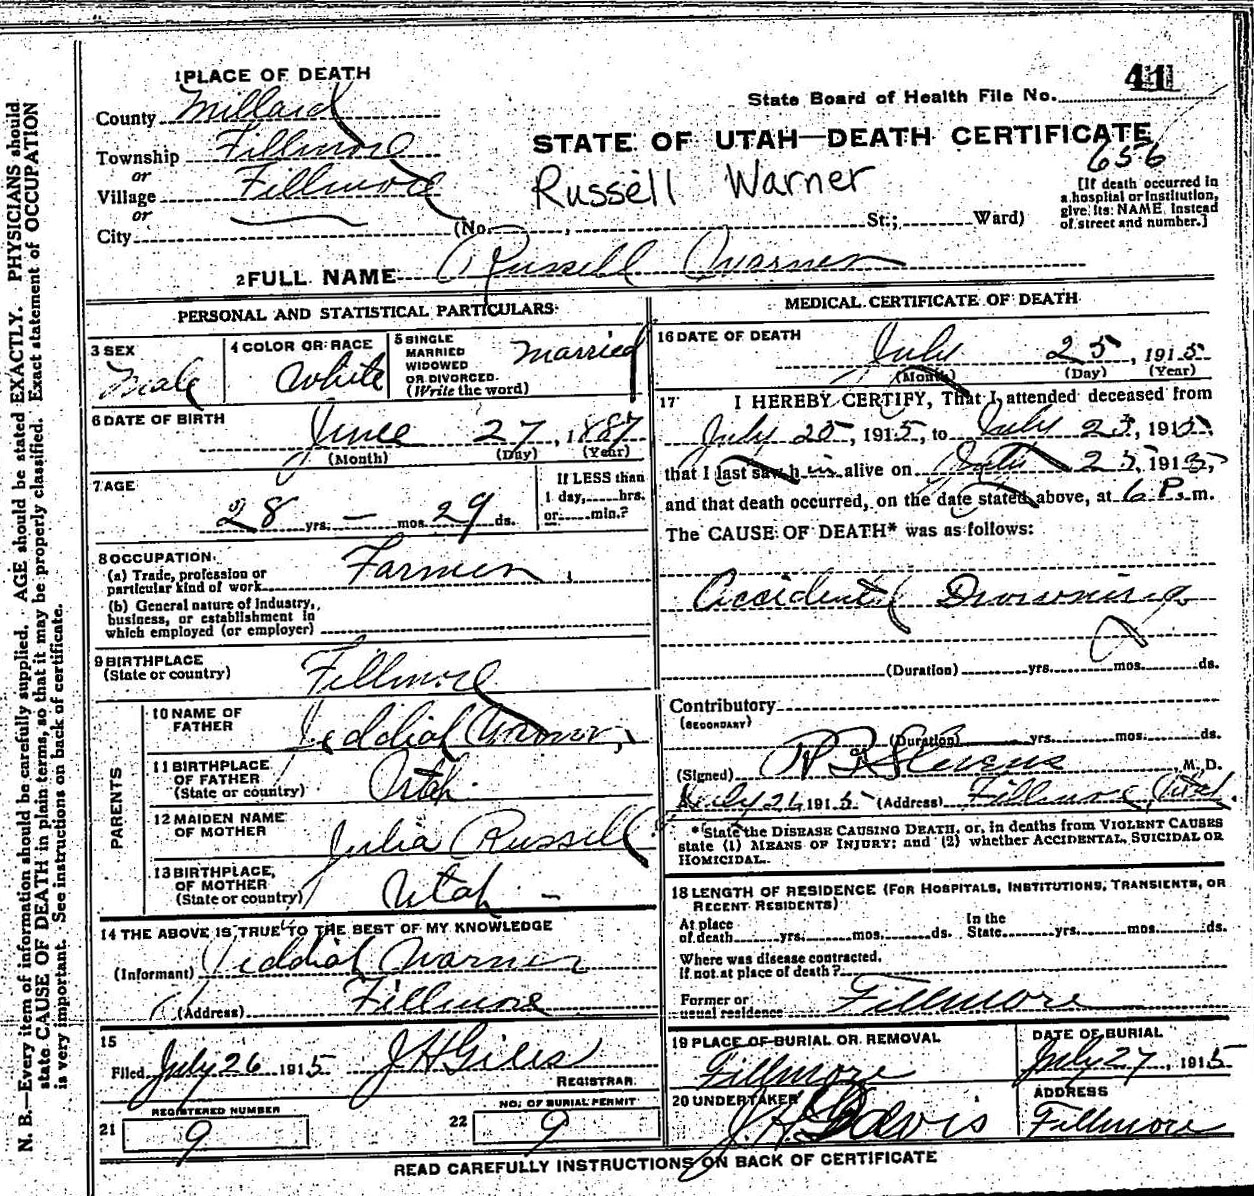 N. B.—Every item of information should be carefully supplied. AGE should be stated EXACTLY. PHYSICIANS should
state CAUSE OF DEATH in plain terms, so that it may be properly classified. Exact statement of OCCUPATION
is very important. See instructions on back of certificate.
1 PLACE OF DEATH
41
State Board of Health File No.
County Millard
STATE OF UTAH—DEATH CERTIFICATE
Township Fillmore
656
or
Village Fillmore
Russell Warner
[If death occurred in
a hospital or institution,
give its NAME instead
of street and number.]
or
City (No. , St.; Ward)
2 FULL NAME Russell Warner
PERSONAL AND STATISTICAL PARTICULARS
3 SEX
Male
4 COLOR OR RACE
White
5 SINGLE
MARRIED
WIDOWED
OR DIVORCED.
(Write the word)
Married
6 DATE OF BIRTH
June 27, 1887
(Month) (Day) (Year)
7 AGE
28 yrs. — mos. 29 ds.
If LESS than
1 day, hrs.
or min.?
8 OCCUPATION
(a) Trade, profession or
particular kind of work Farmer
(b) General nature of Industry,
business, or establishment in
which employed (or employer)
9 BIRTHPLACE
(State or country)
Fillmore
PARENTS
10 NAME OF
FATHER
Jeddiah Warner,
11 BIRTHPLACE
OF FATHER
(State or country)
Utah.
12 MAIDEN NAME
OF MOTHER
Julia Russell
13 BIRTHPLACE,
OF MOTHER
(State or country)
Utah —
14 THE ABOVE IS TRUE TO THE BEST OF MY KNOWLEDGE
(Informant) Jeddiah Warner
(Address) Fillmore
15
Filed July 26 1915 J H Giles
REGISTRAR
REGISTERED NUMBER
21 9
NO. OF BURIAL PERMIT
22 9
MEDICAL CERTIFICATE OF DEATH
16 DATE OF DEATH
July 25, 1915
(Month) (Day) (Year)
17 I HEREBY CERTIFY, That I attended deceased from
July 25, 1915, to July 25, 1915,
that I last saw him alive on 25, 1915,
and that death occurred, on the date stated above, at 6 P. m.
The CAUSE OF DEATH* was as follows:
Accidental Drowning
(Duration) yrs. mos. ds.
Contributory
(SECONDARY)
(Duration) yrs. mos. ds.
(Signed) Stevens, M. D.
July 26 1915 (Address) Fillmore, Utah.
*State the DISEASE CAUSING DEATH, or, in deaths from VIOLENT CAUSES
state (1) MEANS OF INJURY; and (2) whether ACCIDENTAL, SUICIDAL OR
HOMICIDAL.
18 LENGTH OF RESIDENCE (FOR HOSPITALS, INSTITUTIONS, TRANSIENTS, OR
RECENT RESIDENTS)
At place
of death yrs. mos. ds.
In the
State yrs. mos. ds.
Where was disease contracted.
If not at place of death?
Former or
usual residence Fillmore
19 PLACE OF BURIAL OR REMOVAL
Fillmore
DATE OF BURIAL
July 27, 1915
20 UNDERTAKER
J. H. Davis
ADDRESS
Fillmore
READ CAREFULLY INSTRUCTIONS ON BACK OF CERTIFICATE